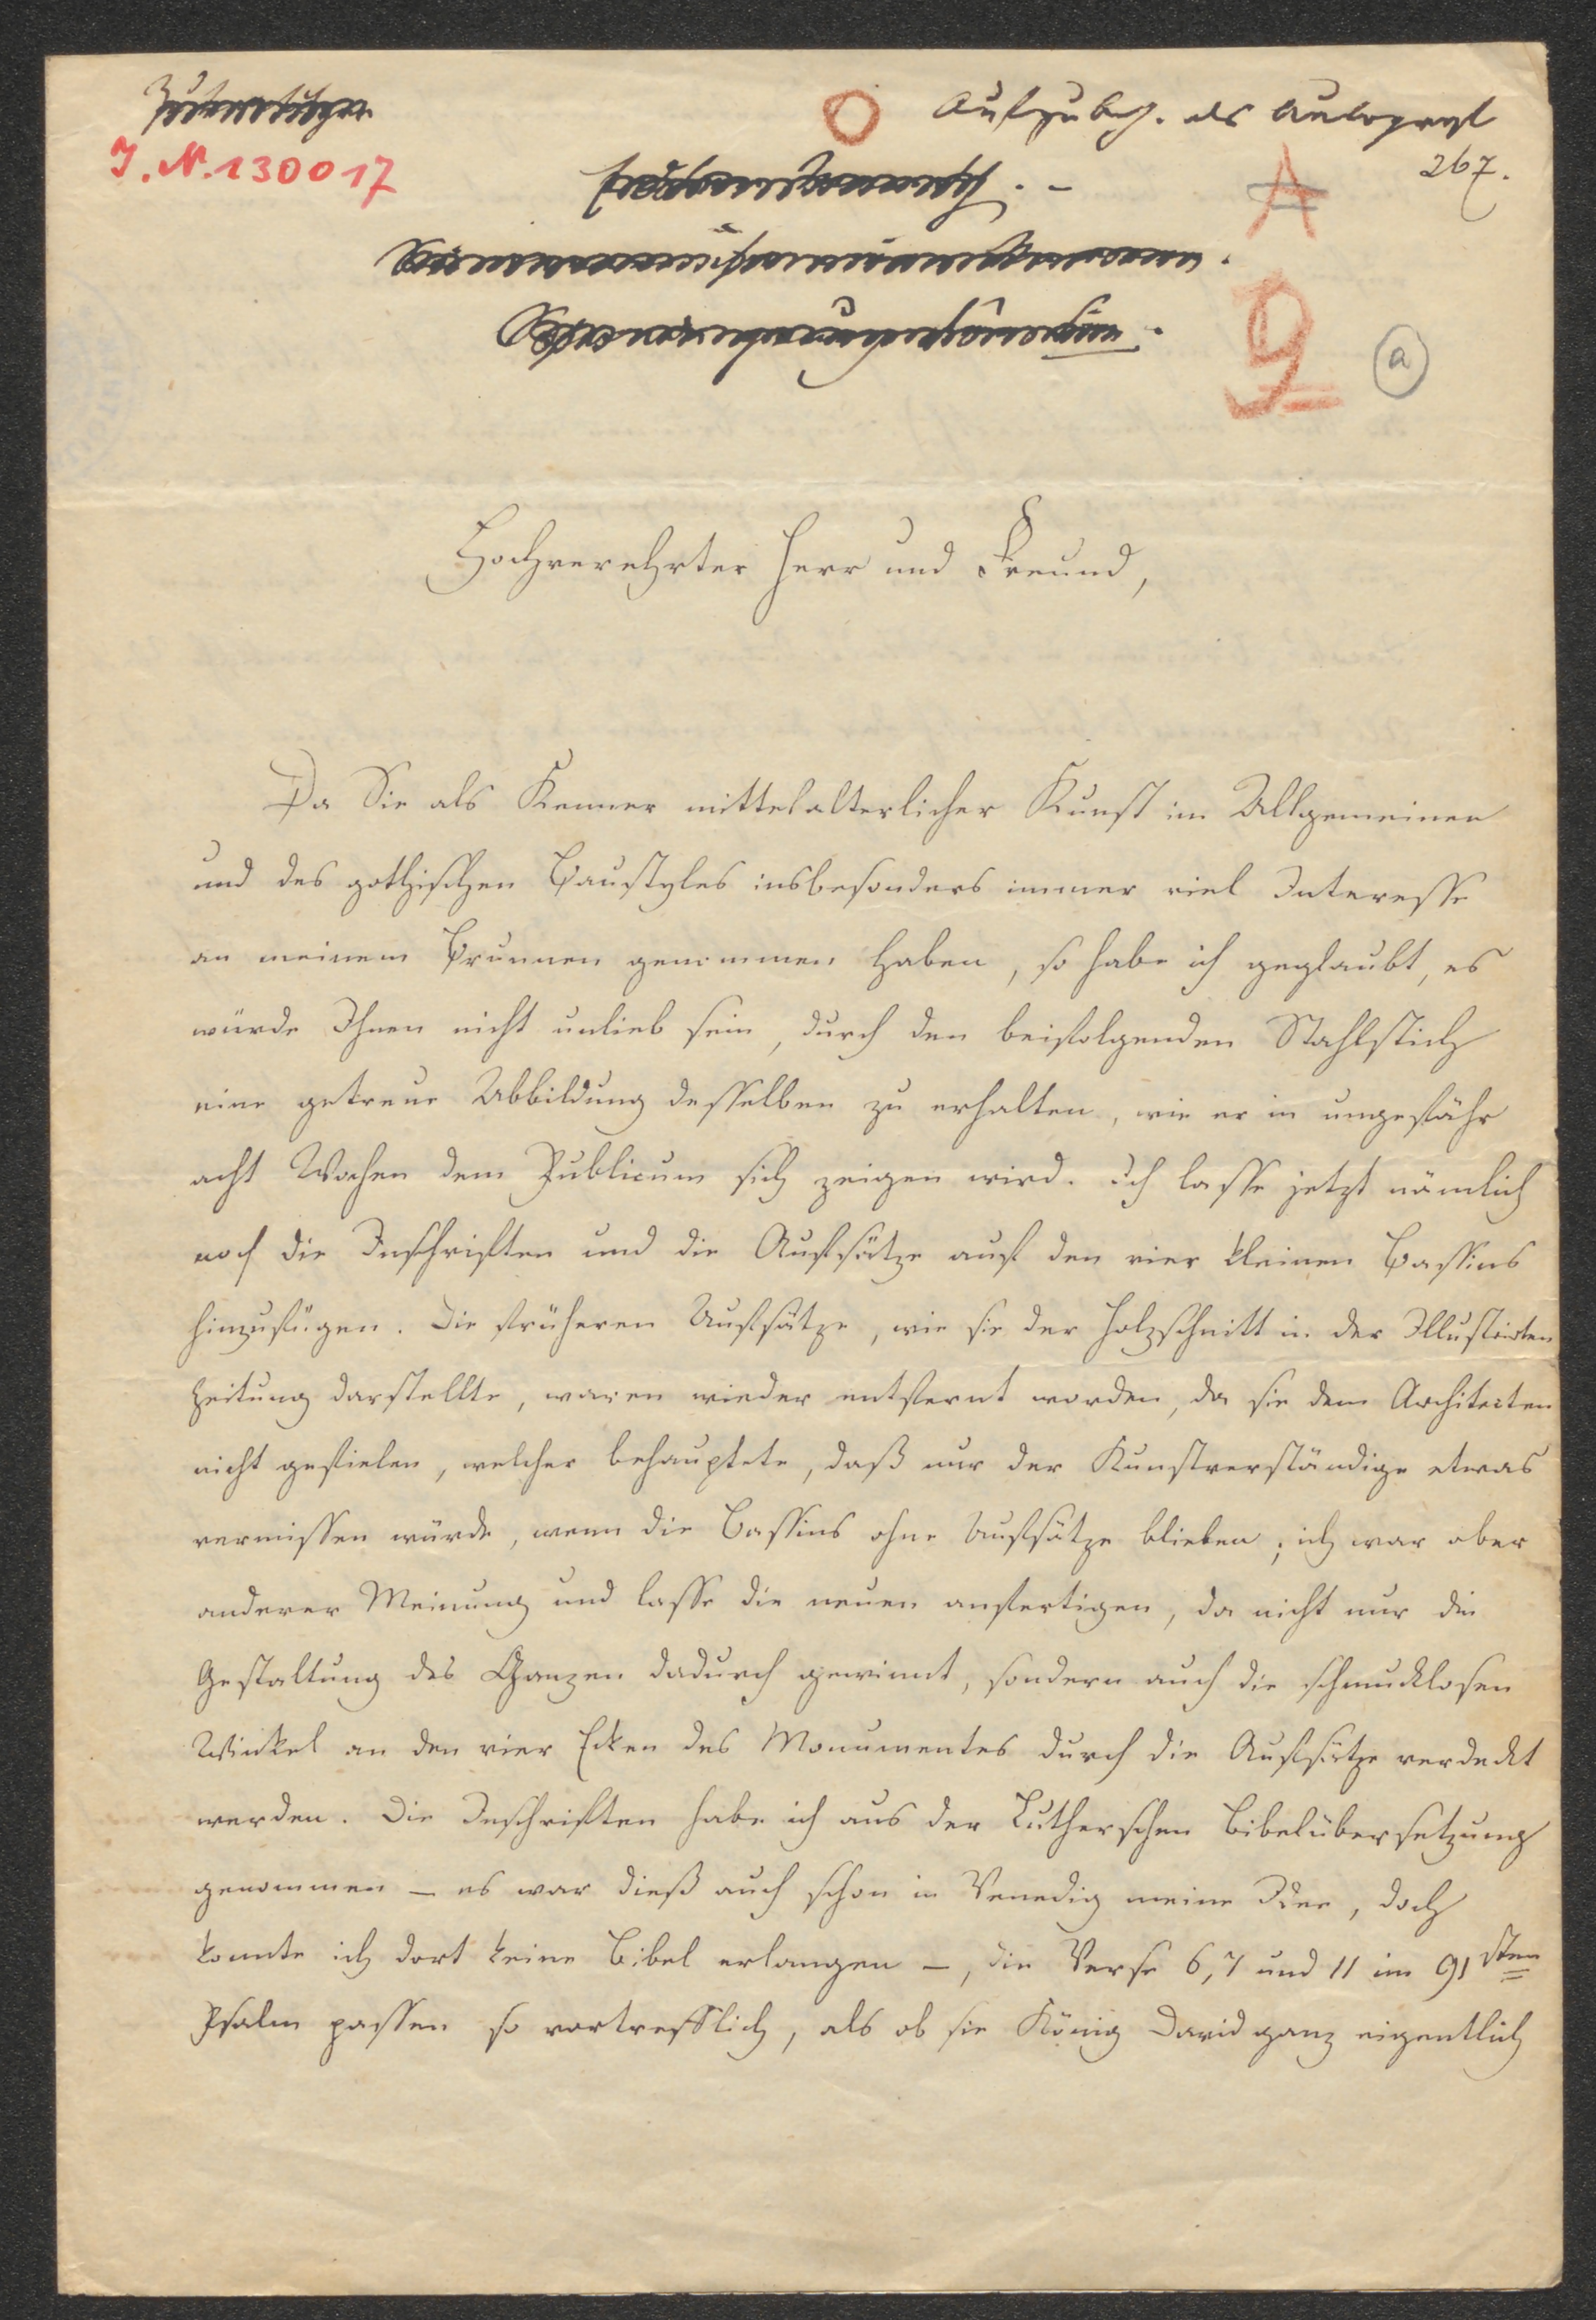 Aufzubeh. als Autograph
267.
J. N. 130017
A
9
a
Hochverehrter Herr und Freund,
Da Sie als Kenner mittelalterlicher Kunst im Allgemeinen
und des gothischen Baustyles insbesonders immer viel Interesse
an meinem Brunnen genommen haben, so habe ich geglaubt, es
würde Ihnen nicht unlieb sein, durch den beifolgenden Stahlstich
eine getreue Abbildung desselben zu erhalten, wie er in ungefähr
acht Wochen dem Publicum sich zeigen wird. Ich lasse jetzt nämlich
noch die Inschriften und die Aufsätze auf den vier kleinen Bassins
hinzufügen. Die früheren Aufsätze, wie sie der Holzschnitt in der Illustrirten
Zeitung darstellte, waren wieder entfernt worden, da sie dem Architecten
nicht gefielen, welcher behauptete, daß nur der Kunstverständige etwas
vermissen würde, wenn die Bassins ohne Aufsätze blieben; ich war aber
anderer Meinung und lasse die neuen anfertigen, da nicht nur die
Gestaltung des Ganzen dadurch gewinnt, sondern auch die schmucklosen
Winkel an den vier Ecken des Monumentes durch die Aufsätze verdeckt
werden. Die Inschriften habe ich aus der Lutherschen Bibelübersetzung
genommen – es war dieß auch schon in Venedig meine Idee, doch
konnte ich dort keine Bibel erlangen –, die Verse 6, 7 und 11 im 91sten
Psalm passen so vortrefflich, als ob sie König David ganz eigentlich